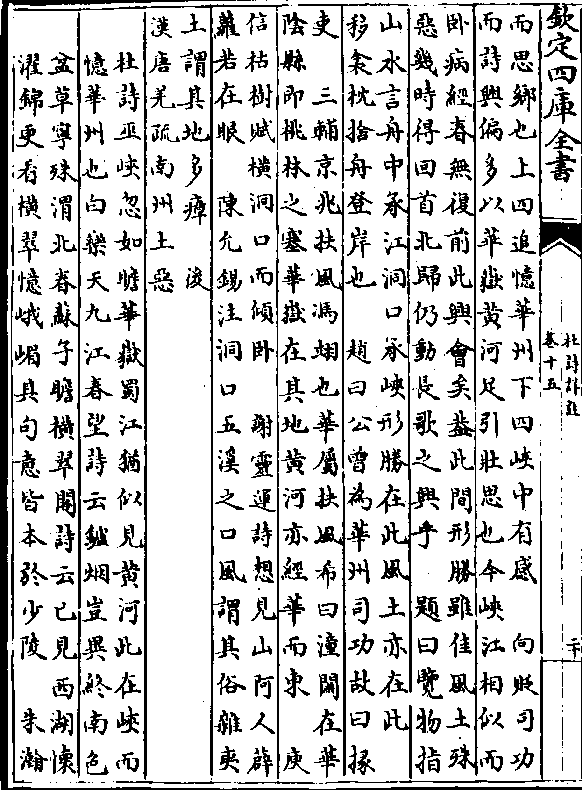 欽定四庫全書
杜詩詳註
卷十五
二十
而思鄉也上四追憶華州下四峽中有感　向貶司功
而詩興偏多以華嶽黃河足引壯思也今峽江相似而
卧病經春無復前此興會矣葢此間形勝雖佳風土殊
惡幾時得回首北歸仍動長歌之興乎　題曰覽物指
山水言舟中承江洞口承峽形勝在此風土亦在此
移衾枕捨舟登岸也　趙曰公曾為華州司功故曰掾
吏　三輔京兆扶風馮翊也華屬扶風希曰潼關在華
陰縣即桃林之塞華嶽在其地黃河亦經華而東　庾
信枯樹賦横洞口而傾卧　謝靈運詩想見山阿人薜
蘿若在眼　陳允錫注洞口五溪之口風謂其俗雜夷
土謂其地多瘴　後
漢唐羌疏南州土惡
杜詩巫峽忽如瞻華嶽蜀江猶似見黃河此在峽而
憶華州也白樂天九江春望詩云鑪烟豈異終南色
盆草寧殊渭北春蘇子瞻橫翠閣詩云已見西湖懷
濯錦更看橫翠憶峨嵋其句意皆本於少陵　朱瀚